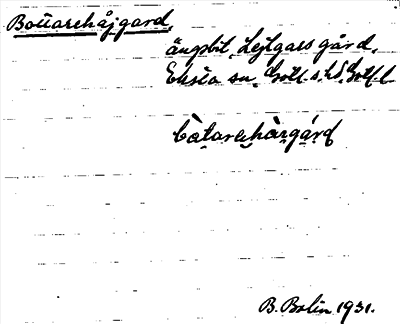 Bottarehåjgard
ängsbit, Lejlgass gård,
Eksta sn, Gotl. s. hd, Gotl. l.
bàtarehàrgárd
B. Bolin 1931.